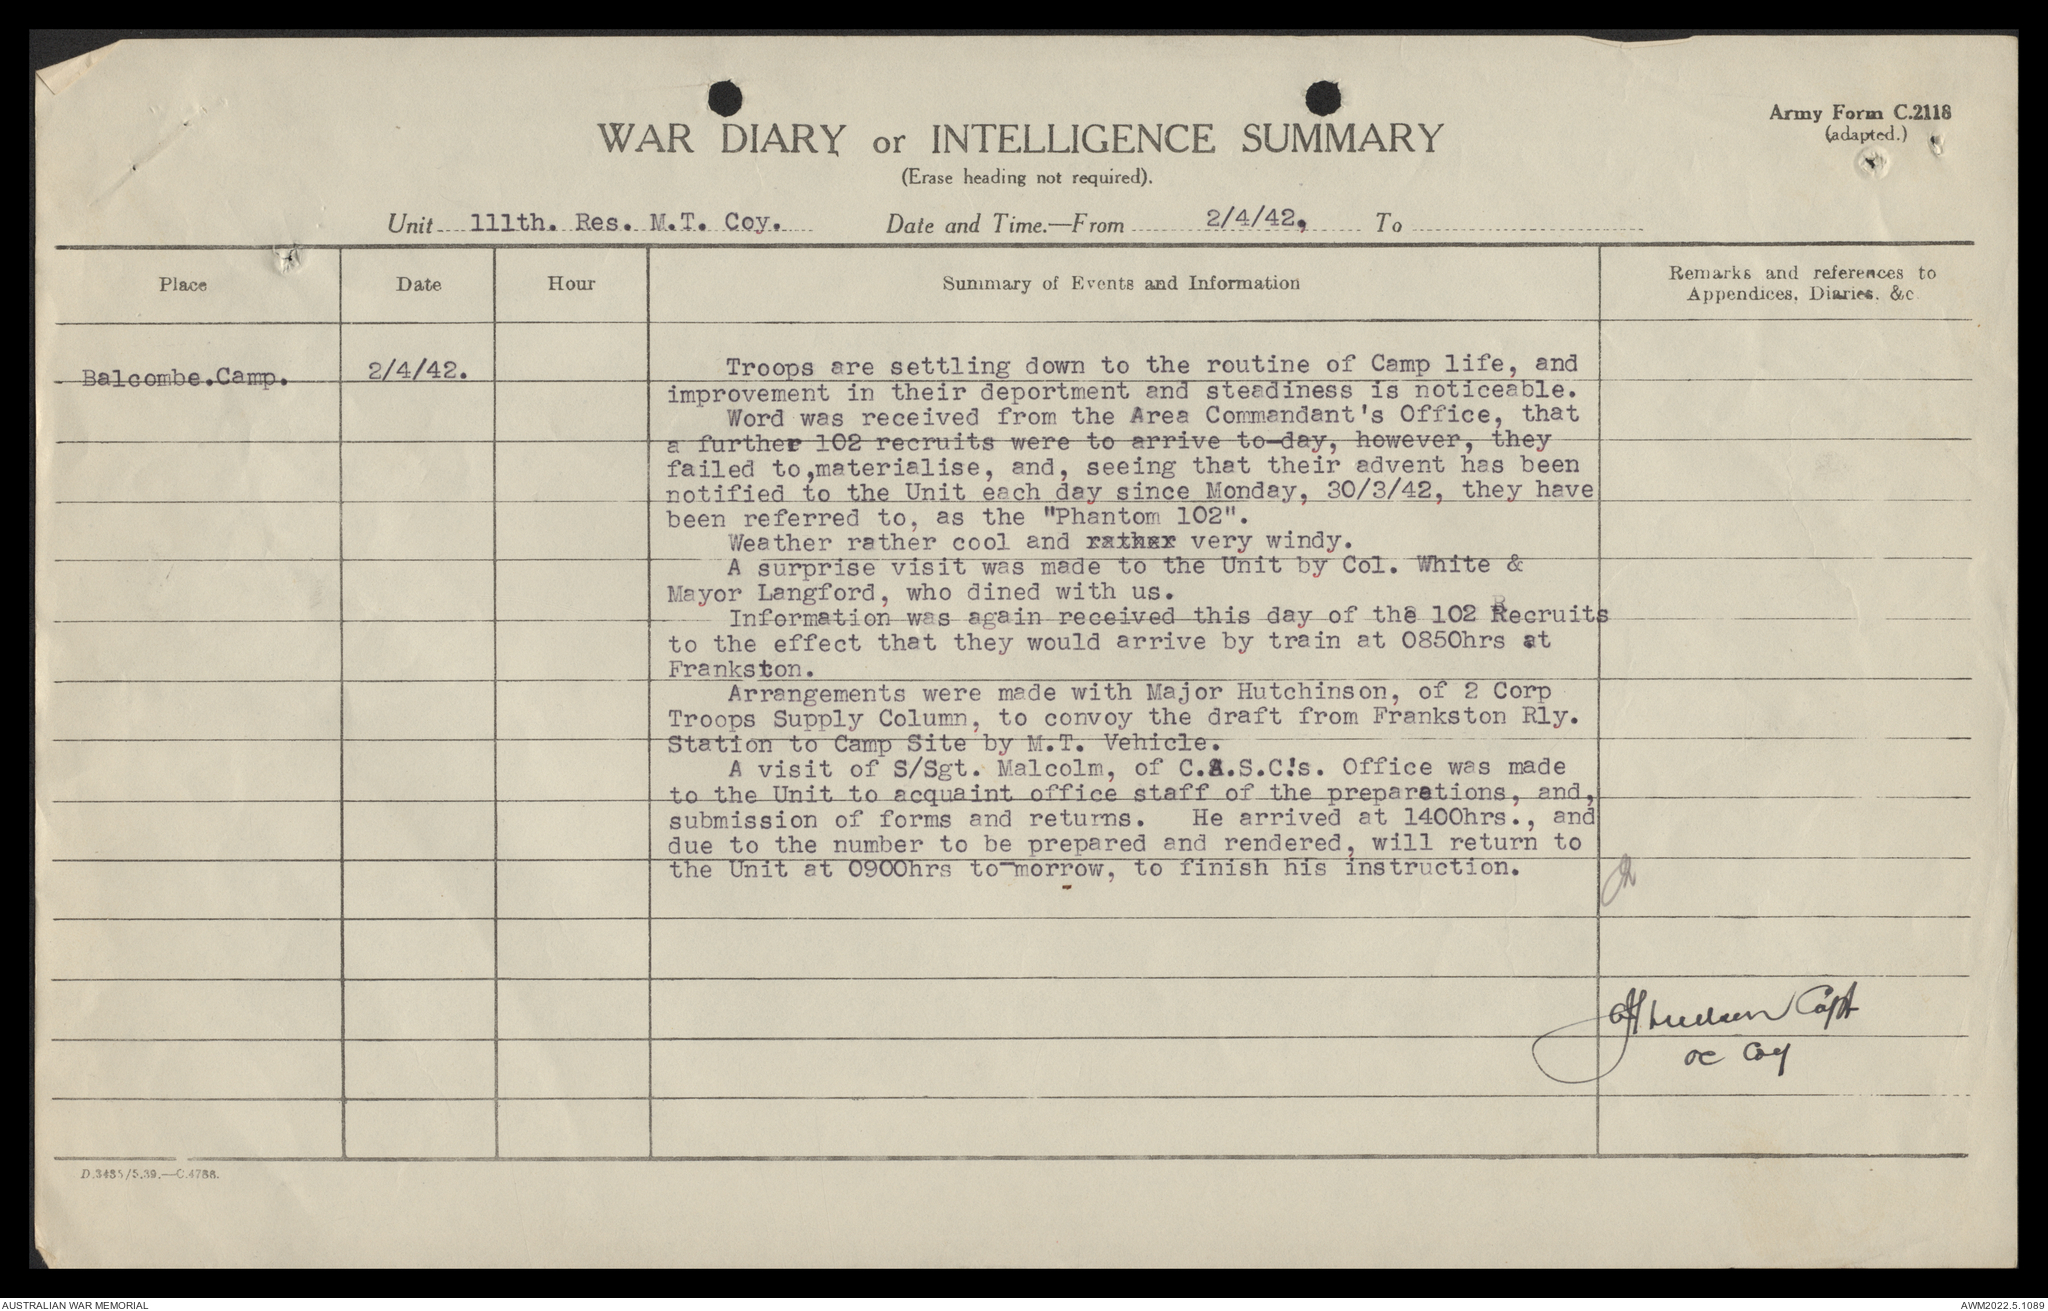 Army Form C.2118
(adapted.)
WAR DIARY or INTELLIGENCE SUMMARY
(Erase heading not required).
Unit 111th. Res. M.T. Coy. Date and Time.—From 2/4/42. To
Place Date Hour Summary of Events and Information Remarks and references to
Appendices, Diaries, &c
Balcombe.Camp. 2/4/42. Troops are settling down to the routine of Camp life, and
improvement in their deportment and steadiness is noticeable.
Word was received from the Area Commandant's Office, that
a further 102 recruits were to arrive to-day, however, they
failed to,materialise, and, seeing that their advent has been
notified to the Unit each day since Monday, 30/3/42, they have
been referred to, as the "Phantom 102".
Weather rather cool and rather very windy.
A surprise visit was made to the Unit by Col. White &
Mayor Langford, who dined with us.
Information was again received this day of the 102 Recruits
to the effect that they would arrive by train at 0850hrs at
Frankston.
Arrangements were made with Major Hutchinson, of 2 Corp
Troops Supply Column, to convoy the draft from Frankston Rly.
Station to Camp Site by M.T. Vehicle.
A visit of S/Sgt. Malcolm, of C.A.S.C!s. Office was made
to the Unit to acquaint office staff of the preparations, and,
submission of forms and returns. He arrived at 1400hrs., and
due to the number to be prepared and rendered, will return to
the Unit at 0900hrs to-morrow, to finish his instruction.
Capt
OC Coy
D.3435/5.39.—C.4788.
AUSTRALIAN WAR MEMORIAL
AWM2022.5.1089